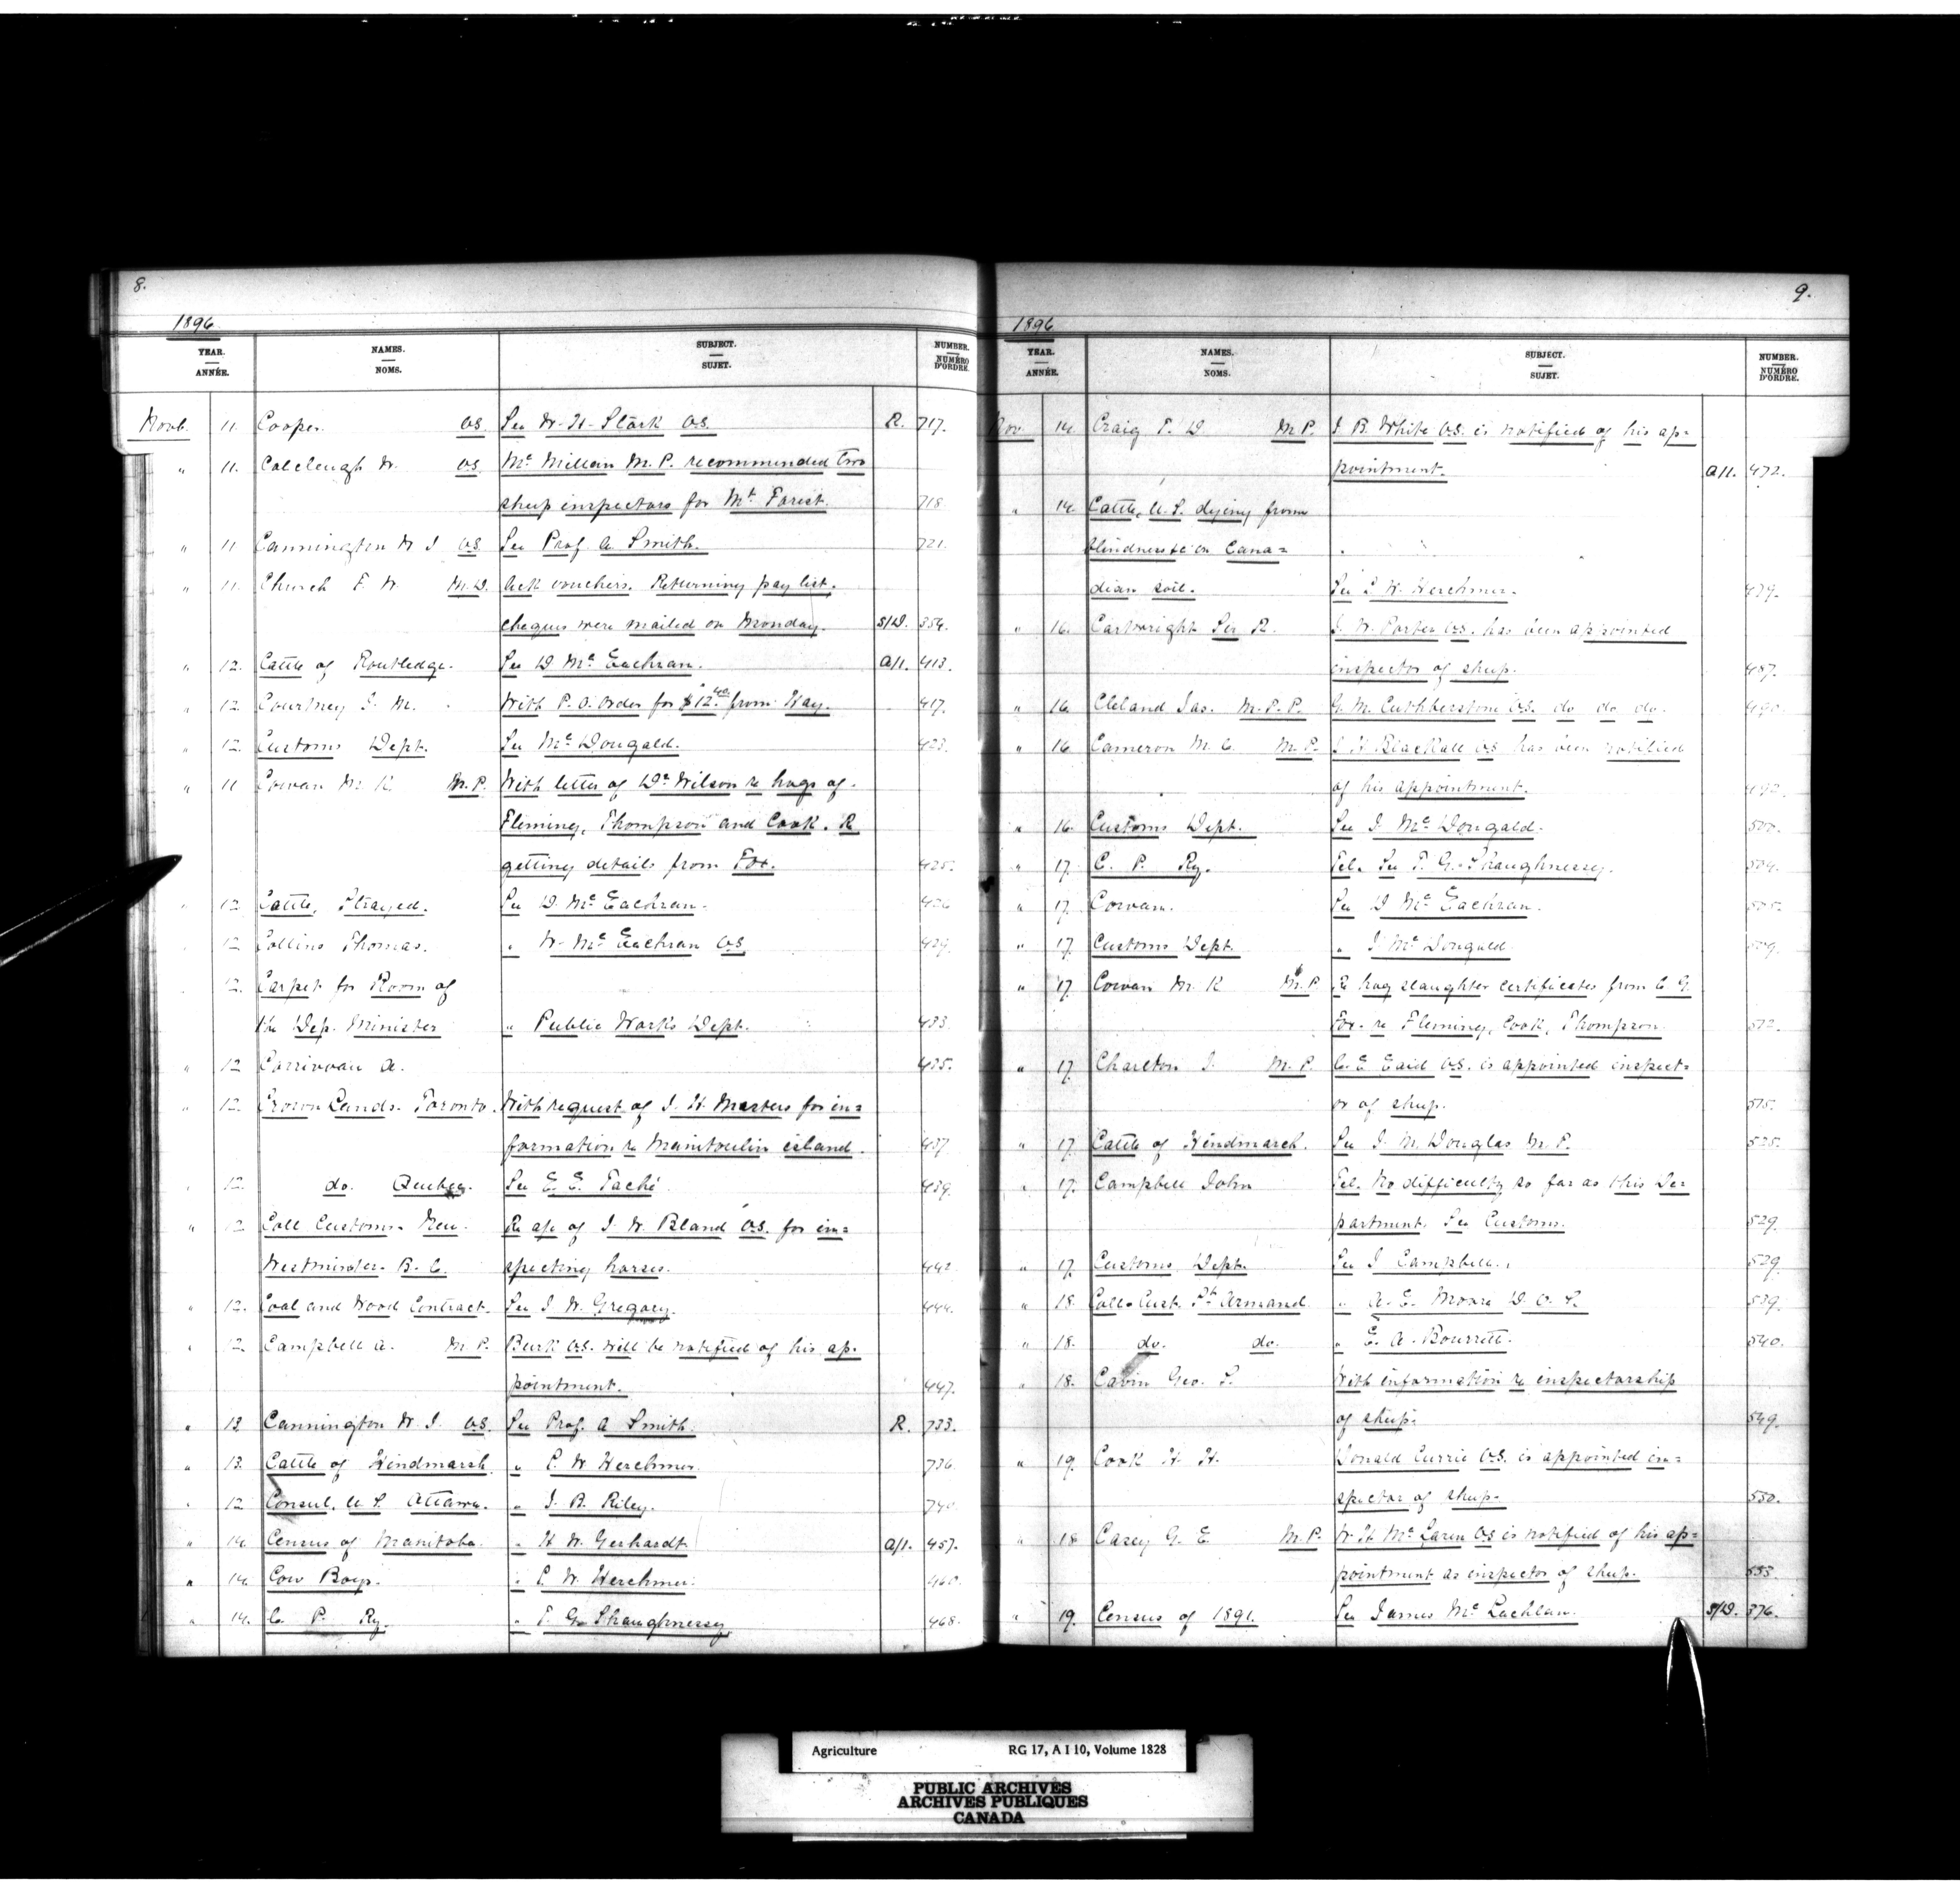 8.
1896
YEAR. NAMES. SUBJECT. NUMBER.
ANNÉE. NOMS. SUJET. NUMÉRO D'ORDRE.
Novb. 11. Cooper. VS. See W. H. Stark VS. R. 717.
" 11. Colcleugh W. VS. Mc Millan M.P. recommended two
sheep inspectors for Mt Forest. 718
" 11 Cannington W. J. VS. See Prof. A. Smith. 721.
" 11. Church F. W. M.D. Ack vouchers. Returning pay list.
cheques were mailed on Monday. S/D. 354.
" 12. Cattle of Routledge. See D Mc Eachran. A/1. 413.
" 12. Courtney J. M. With P. O. Order for $12.40 from Hay. 417.
" 12. Customs Dept. See Mc Dougald. 423.
" 11 Cowan M. K. M.P. With letter of Dr Wilson re hogs of
Fleming, Thompson and Cook. R
getting details from Fox. 425.
" 12 Cattle, Strayed. See D. Mc Eachran. 426
" 12 Collins Thomas. " W. Mc Eachran VS. 429.
" 12. Carpet for Room of
the Dep. Minister " Public Works Dept. 433.
" 12 A. 435.
" 12. Crown Lands. Toronto. With request of J. H. Masters for in=
formation re Manitoulin island. 437.
" 12. do. Quebec. See E. E. Taché. 439.
" 12 Coll Customs. New. Re ap of J. W. Bland VS. for in=
Westminster. B. C. specting horses. 442
" 12. Coal and Wood Contract. See J. W. Gregory. 444.
" 12. Campbell A. M.P. Burk VS. will be notified of his ap.
pointment. 447.
" 13. Cannington W. J. VS. See Prof. A Smith. R. 733.
" 13. Cattle of Hindmarsh. " L. W. Herchmer. 736.
" 12 Consul, U S. Ottawa. " J. B. Riley. 740
" 14. Census of Manitoba. " H W. Gerhardt A/1. 457.
" 14. Cow Boys. " L. W. Herchmer. 460.
" 14. C. P. Ry. " T. G. Shaughnessy. 468.
9.
1896
YEAR. NAMES. SUBJECT. NUMBER.
ANNÉE. NOMS. SUJET. NUMÉRO D'ORDRE.
Nov. 14. Craig T. D. M.P. J. B. White VS. is notified of his ap=
pointment. A/1. 472.
" 14. Cattle, U. S. dying from
blindness &c on Cana=
dian soil. See L. W. Herchmer. 479.
" 16. Cartwright Sir R. J. W. Porter VS. has been appointed
inspector of sheep. 487.
" 16. Cleland Jas. M.P.P. G. M. Cuthbertson VS. do do do. 490.
" 16 Cameron M. C. M.P. J H Blackall VS has been notified
of his appointment. 492.
" 16. Customs Dept. See J. Mc Dougald. 500.
" 17. C. P. Ry. Tel. See T. G. Shaughnessy. 504.
" 17. Cowan. See D Mc Eachran. 505.
" 17. Customs Dept. " J. Mc Dougald. 509.
" 17. Cowan M. K M.P. Re hog slaughter certificates from C G.
Fox. re Fleming, Cook, Thompson. 512.
" 17. Charlton J. M.P. C. E. Eaid VS. is appointed inspect=
or of sheep. 515.
" 17. Cattle of Hindmarsh. See J. M. Douglas M.P. 525.
" 17. Campbell John Tel. No difficulty so far as this De=
partment. See Customs. 529.
" 17. Customs Dept. See J Campbell. 529.
" 18. Coll. Cust. St Armand. " A. E. Moore D. V. S. 539.
" 18. do. do. " E. A. Bourrett. 540.
" 18. Cavin Geo. S. With information re inspectorship
of sheep. 549.
" 19. Cook H. H. Donald Currie VS. is appointed in=
spector of sheep. 550.
" 18 Casey G. E M.P. W. H Mc Laren VS is notified of his ap=
pointment as inspector of sheep. 553
" 19. Census of 1891. See James Mc Lachlan. S/D. 376.
Agriculture RG 17, A I 10, Volume 1828
PUBLIC ARCHIVES
ARCHIVES PUBLIQUES
CANADA